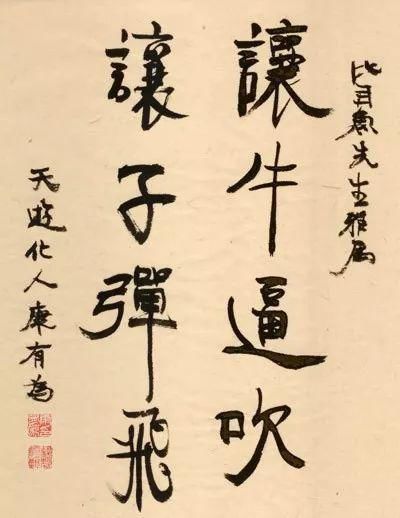 比目魚先生雅属
讓牛逼吹
讓子彈飛
天遊化人康有為